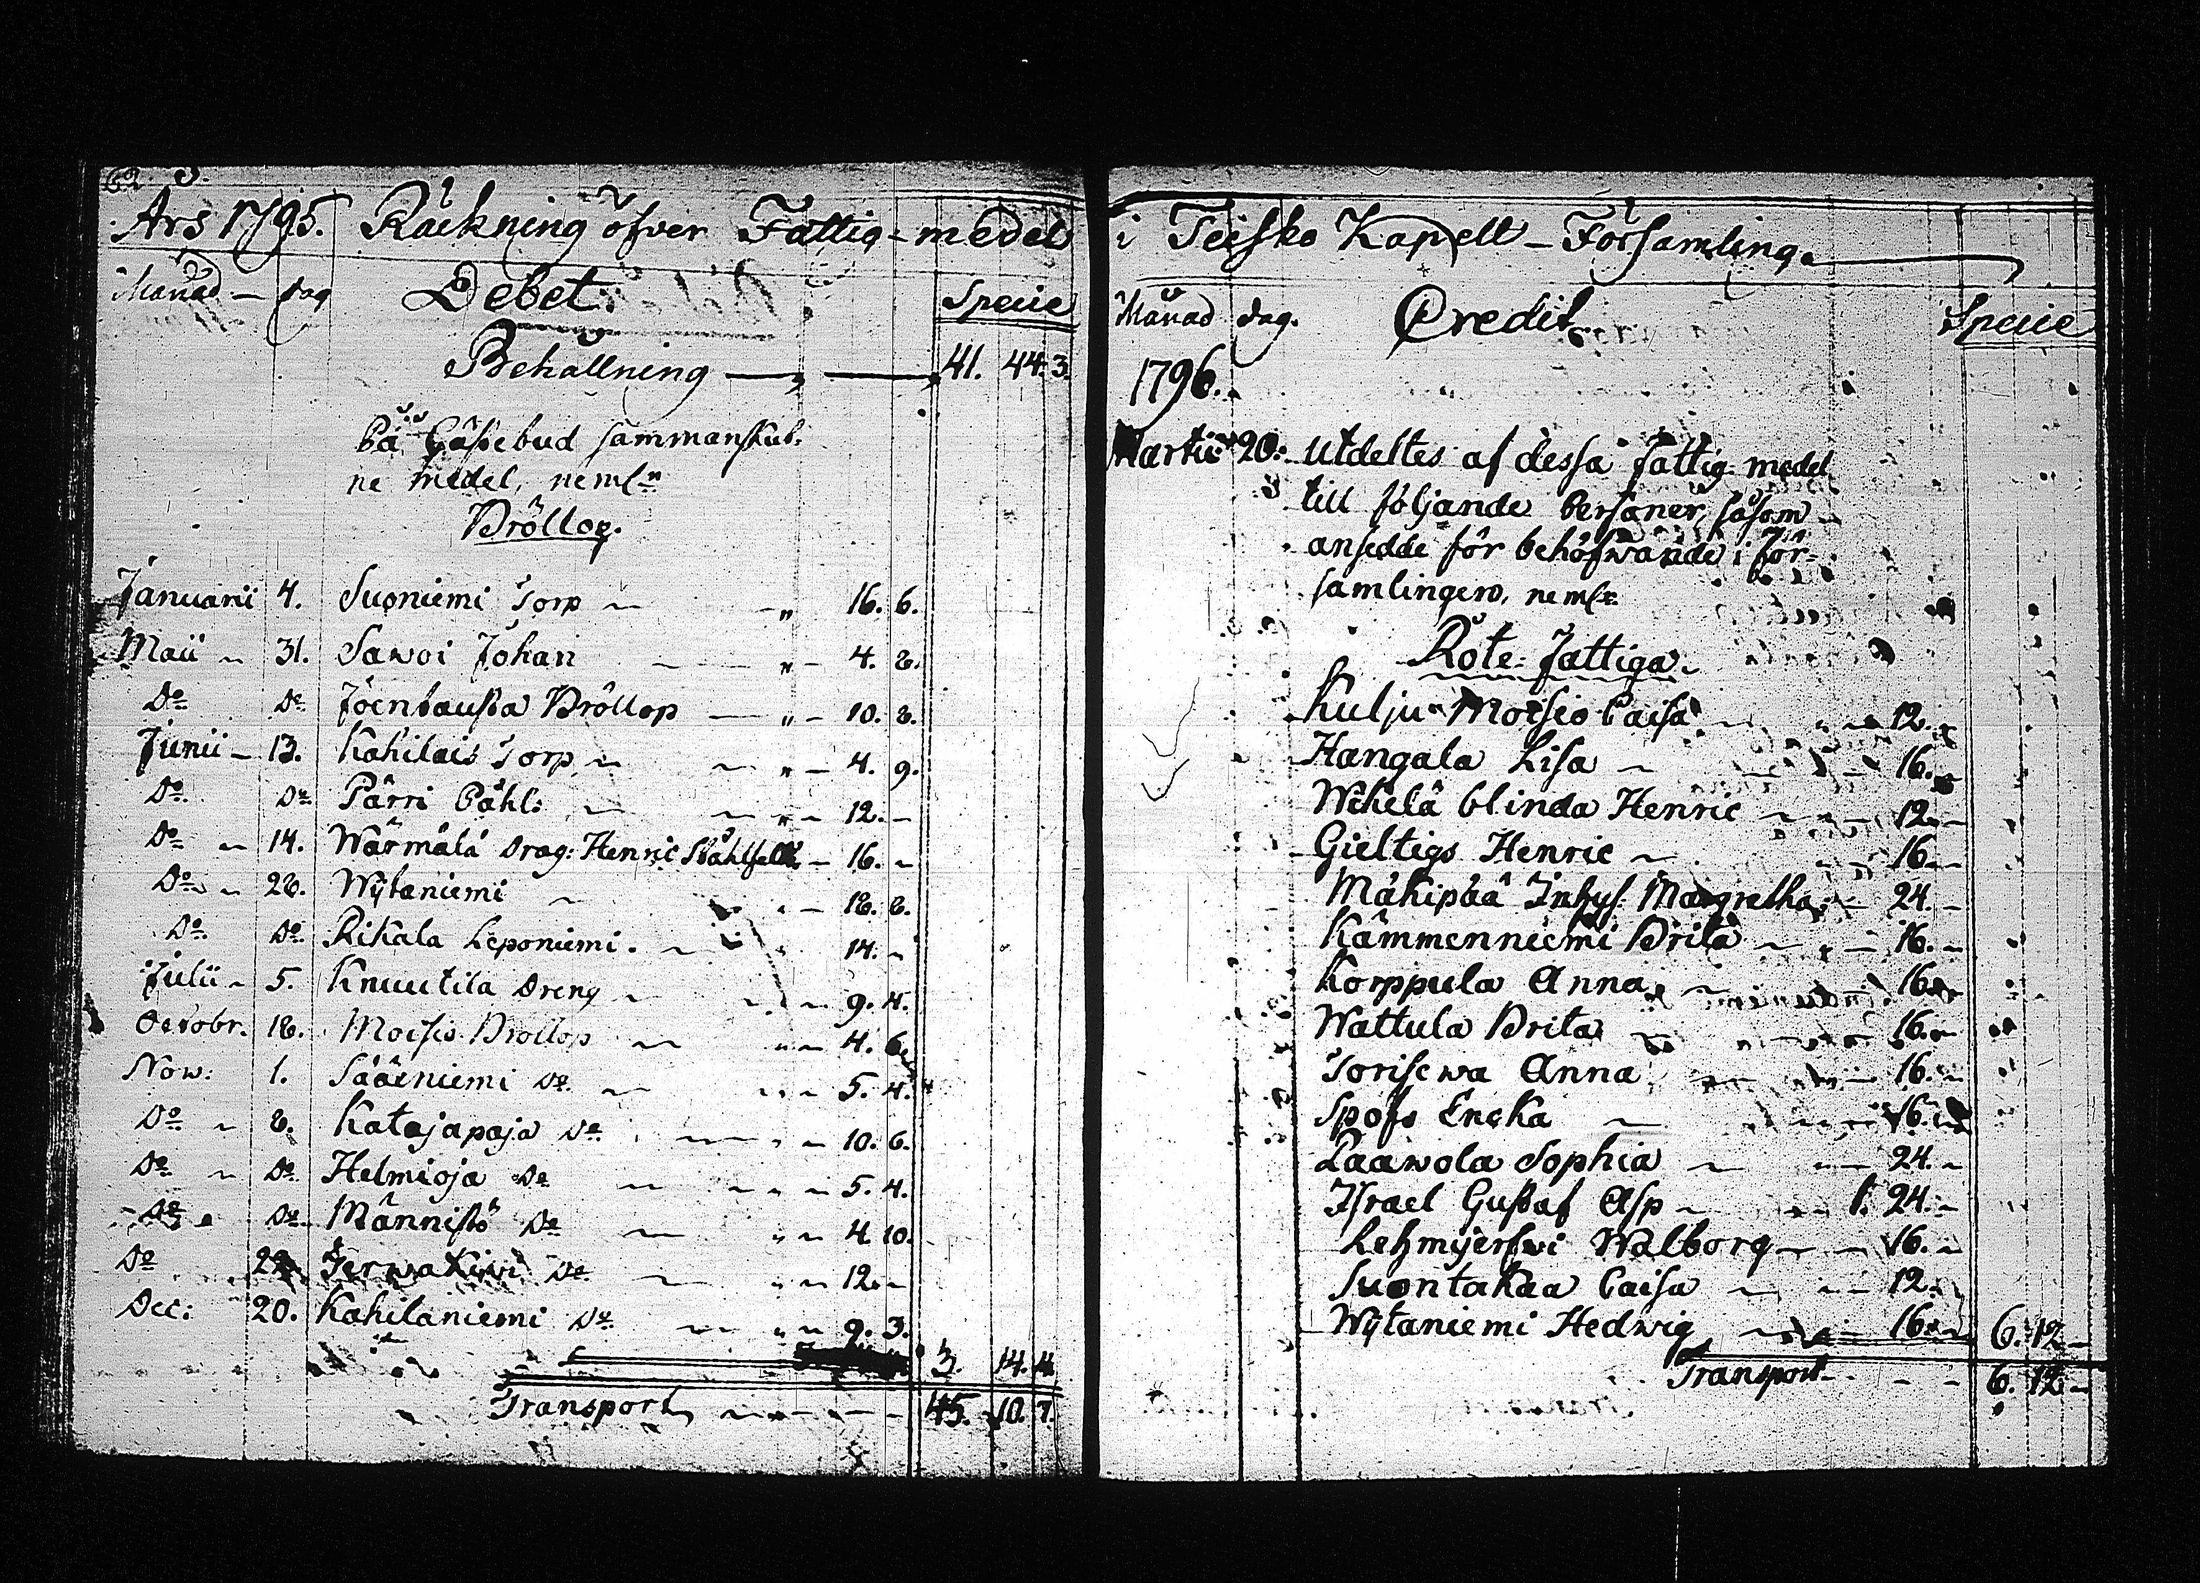 62.
Års 1795. Räckning öfver Fattig-medel
Månad — dag Debet. Specie
Behållning — 41. 44. 3.
På Gästebud sammanskut-
ne medel, neml:n
Bröllop.
Januarii 4. Suoniemi Torp 16. 6.
Maii 31. Sawoi Johan 4. 8.
Do Do Joentausta Bröllop 10. 8.
Junii 13. Kahilais Torp 4. 9.
Do Do Pärri Påhl: 12. -
Do 14. Wärmälä Drag: Henric 16. -
Do 28. Wijtaniemi 18. 8.
Do Do Rikala Leponiemi. 14. -
Julii 5. Knuutila Dreng 9. 4.
Octobr. 18. Moisio Bröllop 4. 6.
Nov: 1. Sääxniemi Do 5. 4.
Do 8. Katajapaja Do 10. 6.
Do Do Helmioja Do 5. 4.
Do Do Männistö Do 4. 10.
Do 22. Jerwakiwi Do 12. -
Dec: 20. Kahilaniemi Do 9. 3.
3. 14. 4.
Transport 45. 10. 7.
i Teisko Kapell-Församling.
Månad dag. Credit. Specie
1796.
Martii 20. utdeltes af dessa Fattig-medel
till följande Personer, såsom
ansedde för behöfwande i För-
samlingen, neml:n
Rote-Fattiga.
Kulju Moisio Caisa 12. -
Hangala Lisa 16. -
Wihelä blinda Henric 12. -
Gieltigs Henric 16. -
Mäkipää Inhys. Margretha 24. -
Kämmenniemi Brita 16. -
Korppula Anna 16. -
Wattula Brita 16. -
Torisewa Anna 16. -
Spofs Encka 16. -
Laawola Sophia 24. -
Israel Gustaf Asp 1. 24. -
Lehmijerfwi Walborg 16. -
Suontakaa Caisa 12. -
Wijtaniemi Hedwig 16. - 6. 12 -
Transport 6. 12 -